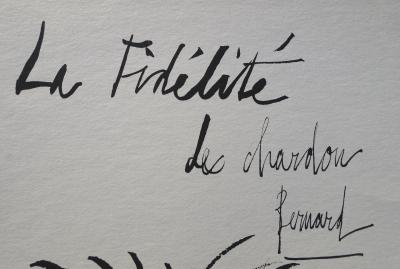 La Fidélité
de chardon
Bernard